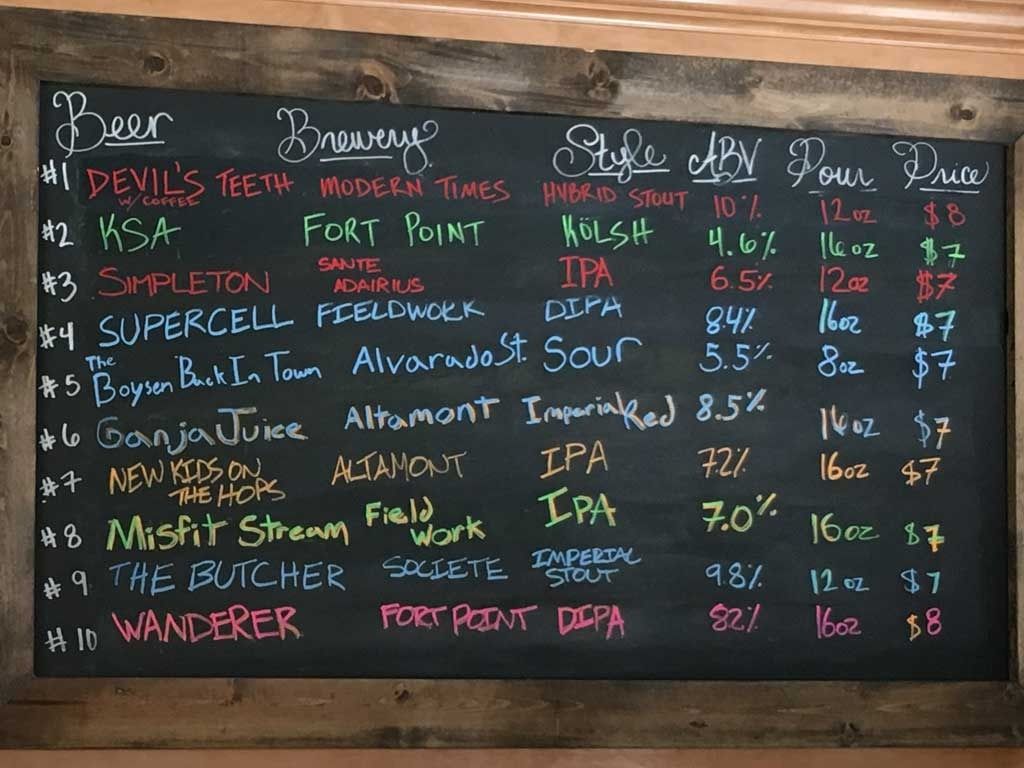 Beer Brewery Style ABV Pour Price
#1 DEVIL'S TEETH W/ COFFEE MODERN TIMES HYBRID STOUT 10% 12oz $8
#2 KSA FORT POINT KÖLSH 4.6% 16oz $7
#3 SIMPLETON SANTE ADAIRIUS IPA 6.5% 12oz $7
#4 SUPERCELL FIELDWORK DIPA 8.4% 16oz $7
#5 The Boysen Back In Town Alvarado St. Sour 5.5% 8oz $7
#6 Ganja Juice Altamont Imperial Red 8.5% 16oz $7
#7 NEW KIDS ON THE HOPS ALTAMONT IPA 7.2% 16oz $7
#8 Misfit Stream Field Work IPA 7.0% 16oz $7
#9 THE BUTCHER SOCIETE IMPERIAL STOUT 9.8% 12oz $7
#10 WANDERER FORT POINT DIPA 82% 16oz $8